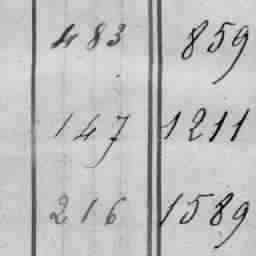 483 859
147 1211
216 1589